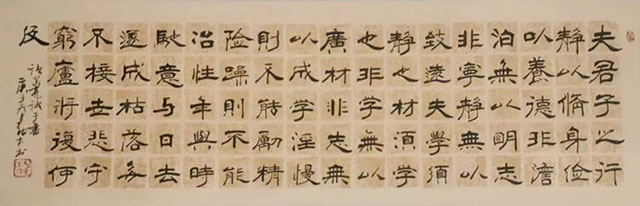 夫君子之行
静以脩身俭
以養德非澹
泊無以明志
非寧静無以
致遠夫學須
静也材須学
也非学無以
廣材非志無
以成学淫慢
則不能勵精
险躁則不能
冶性年與時
馳意与日去
遂成枯落多
不接世悲守
窮廬將復何
及
诸葛亮诫子書